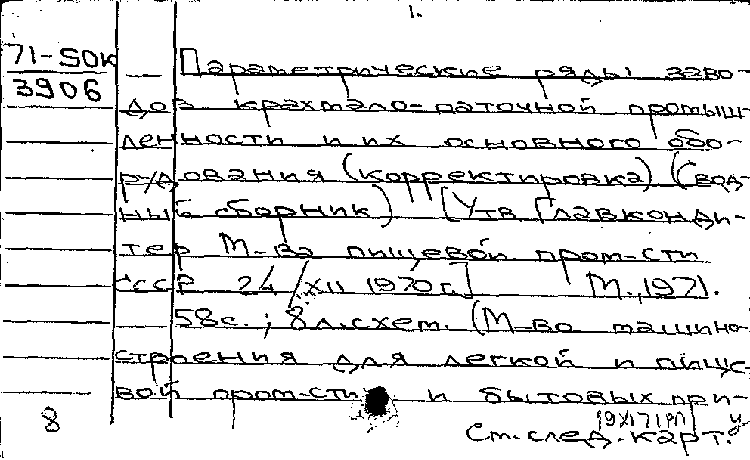 1.
71-50К
3906
Параметрические ряды заво-
дов крахмало-паточной промыш-
ленности и их основного обо-
рудования (корректировка) (Свод-
ный сборник) [Утв. Главконди-
тер М-ва пищевой пром-сти
СССР 24/XII 1970г.] М., 1971.
58с.; 8л.схем. (М-во машино-
строения для легкой и пище-
вой пром-сти и бытовых при-
8
См.след.карт.